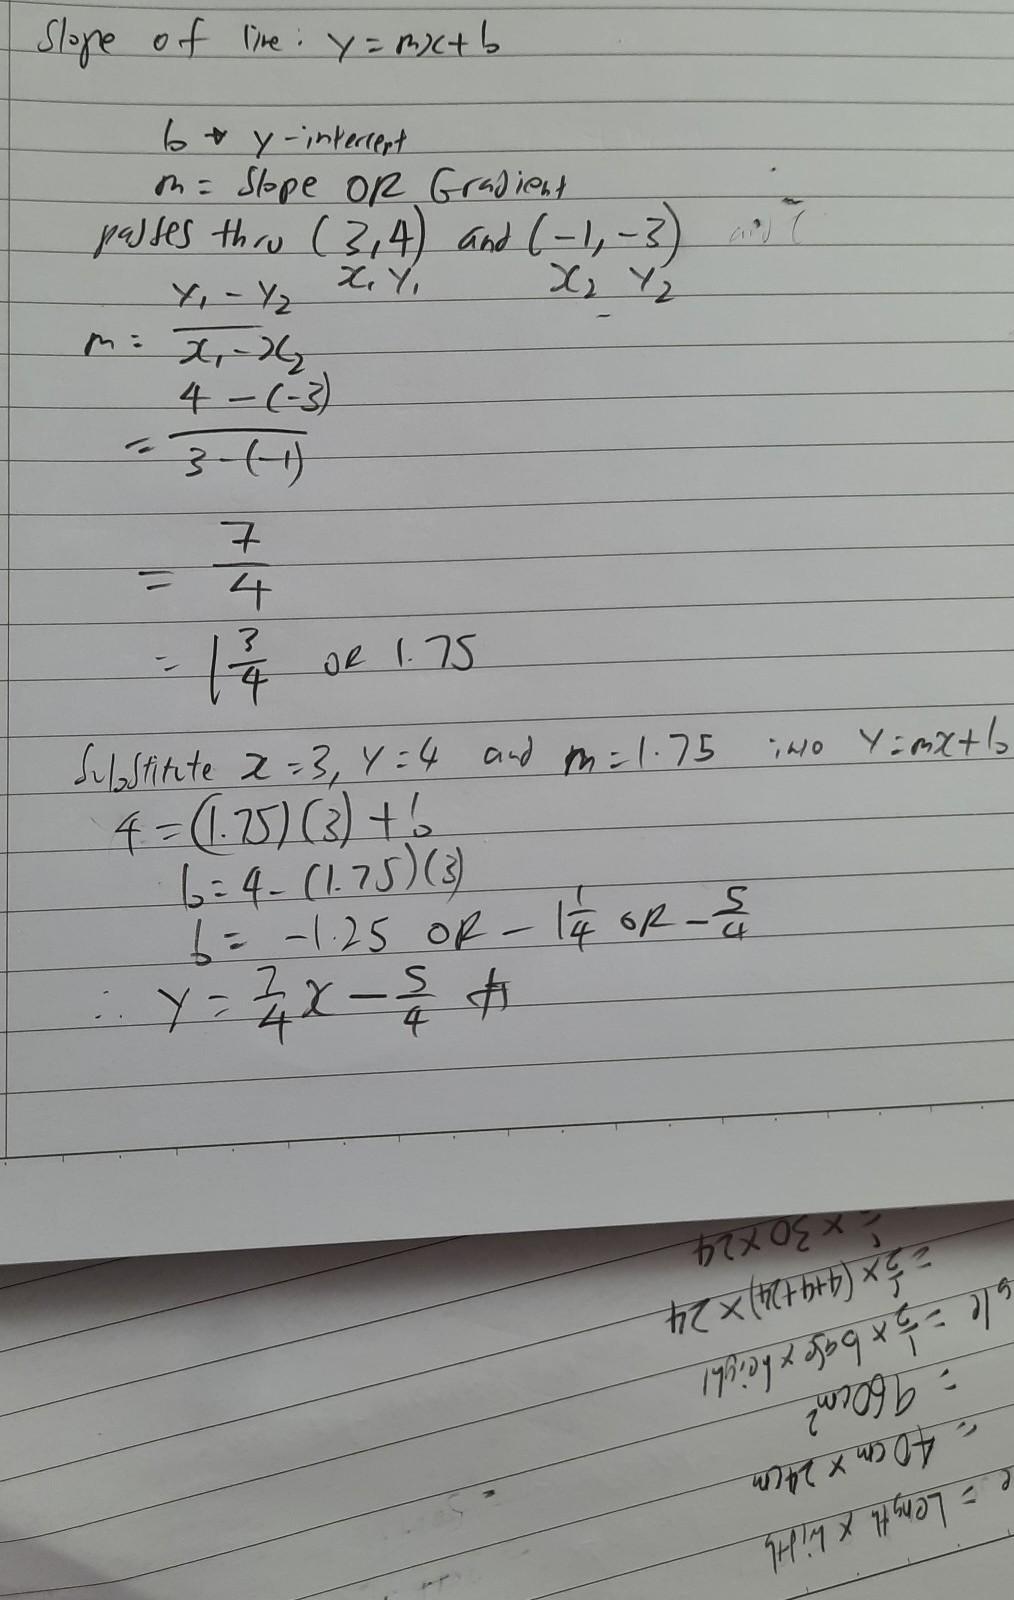 Slope of line: y = mx + b
b → y-intercept
m = Slope OR Gradient
passes thru (3,4) and (-1,-3) and (
x₁ y₁ x₂ y₂
m = y₁ - y₂ / x₁ - x₂
= 4 - (-3) / 3 - (-1)
= 7/4
= 1 3/4 OR 1.75
Substitute x = 3, y = 4 and m = 1.75 into y = mx + b
4 = (1.75)(3) + b
b = 4 - (1.75)(3)
b = -1.25 OR - 1 1/4 OR - 5/4
∴ y = 7/4 x - 5/4 #
= Length × Width
= 40 cm × 24 cm
= 960 cm²
= 1/2 × base × height
= 1/2 × (4+4+24) × 24
× 30 × 24